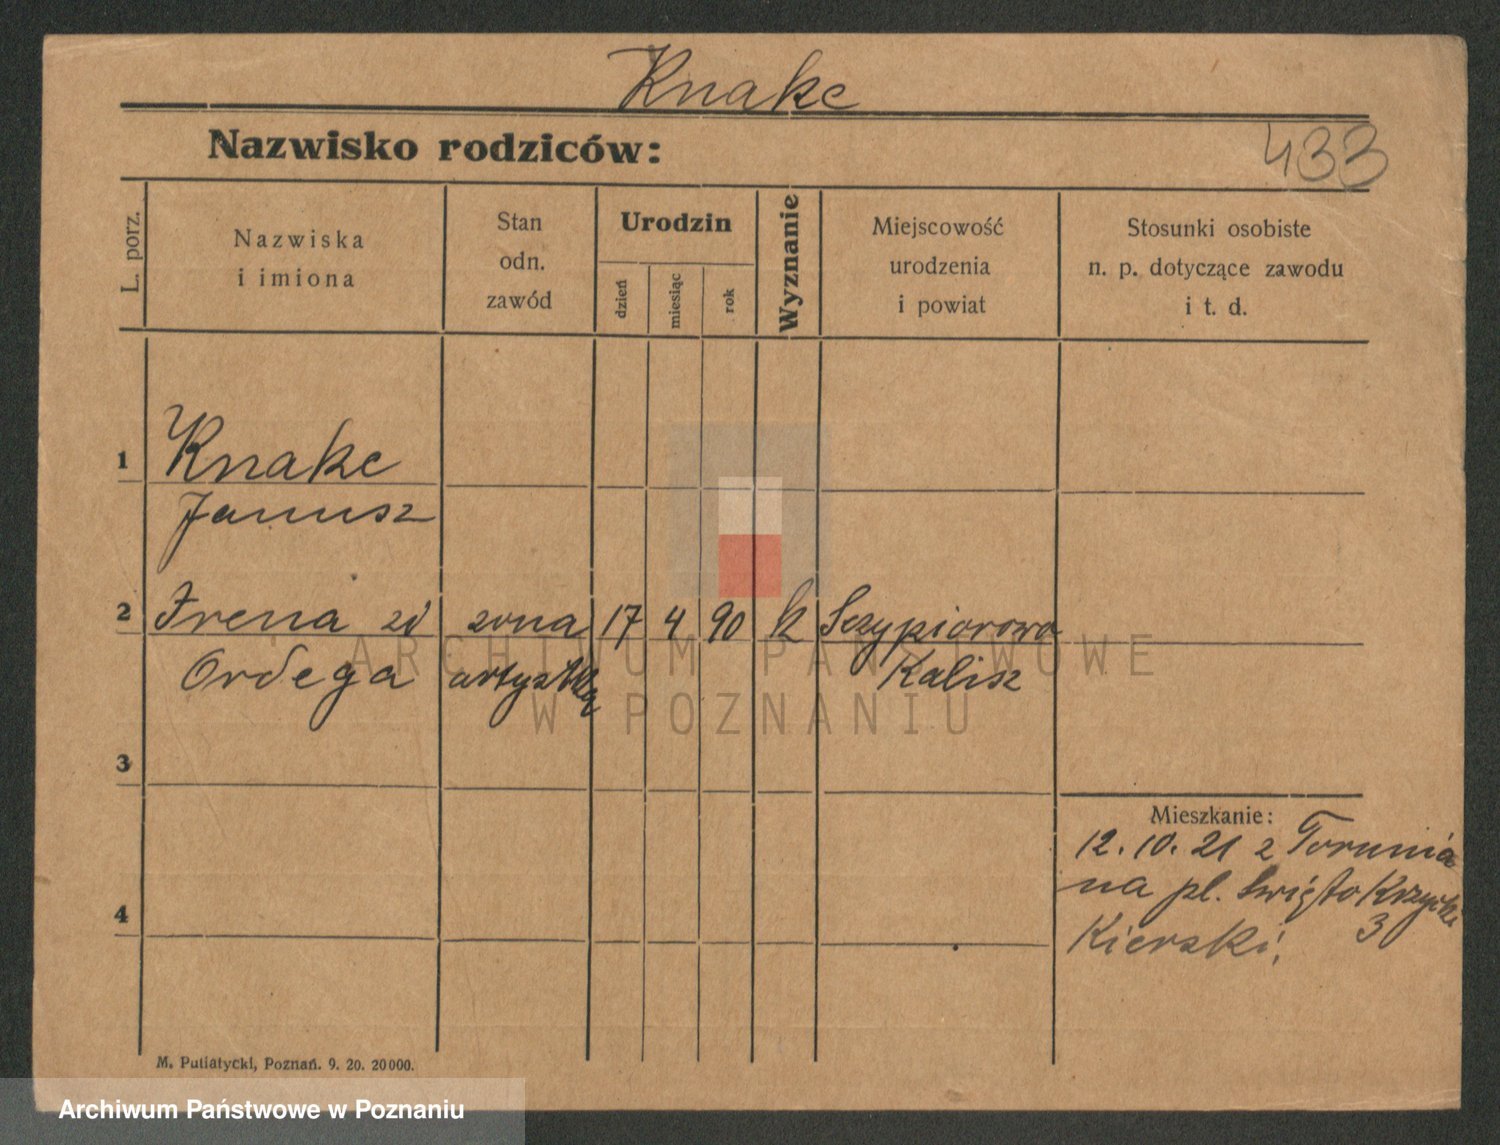 Knake
Nazwisko rodziców:
433
L. porz.
Nazwiska
i imiona
Stan
odn.
zawód
Urodzin
dzień
miesiąc
rok
Wyznanie
Miejscowość
urodzenia
i powiat
Stosunki osobiste
n. p. dotyczące zawodu
i t. d.
1 Knake
Janusz
2 Irena zd żona 17 4 90 k Sczypiorowo
Ordega artystka Kalisz
ARCHIWUM PAŃSTWOWE
W POZNANIU
3
Mieszkanie:
12. 10. 21 z Torunia
na pl. Święto Krzyski
3
Kierski,
4
M. Putiatycki, Poznań. 9. 20. 20000.
Archiwum Państwowe w Poznaniu